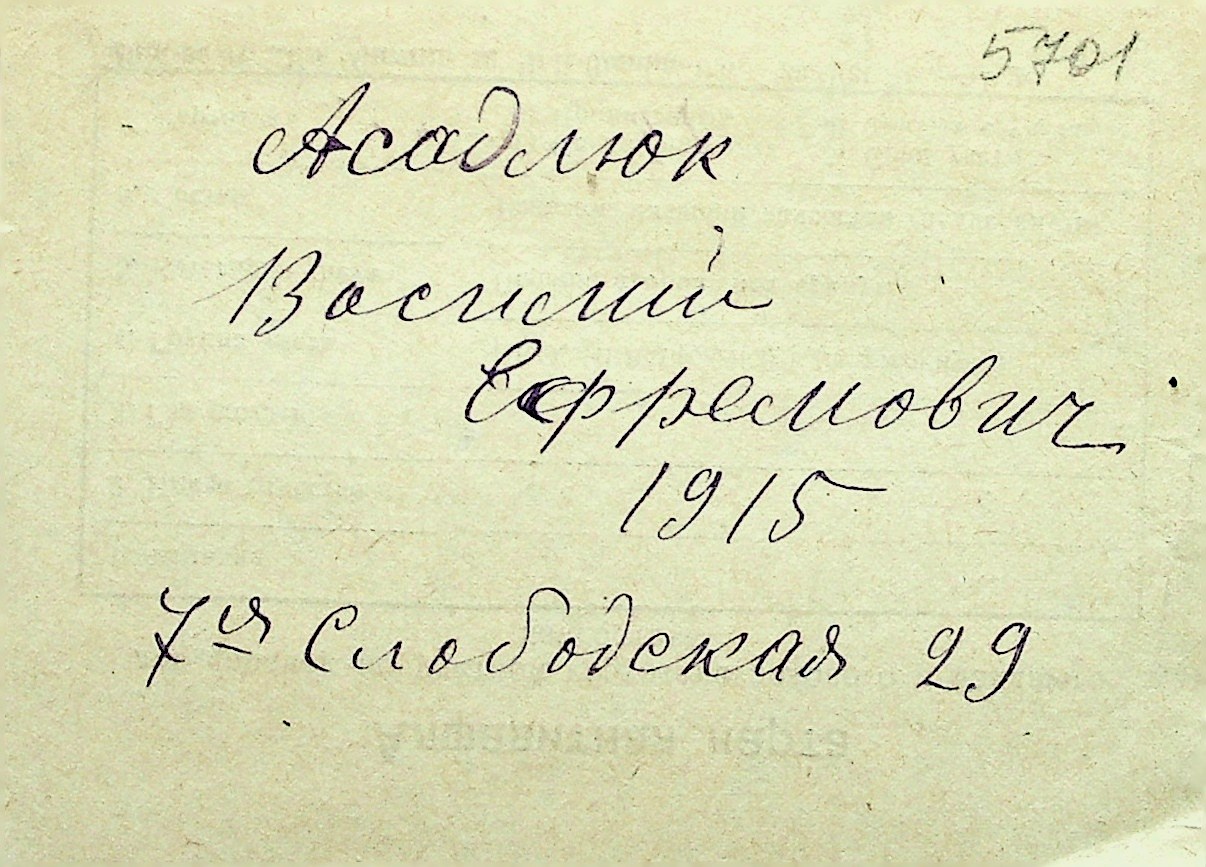 5701
Асадлюк
Василий
Ефремович
1915
7ая Слободская 29